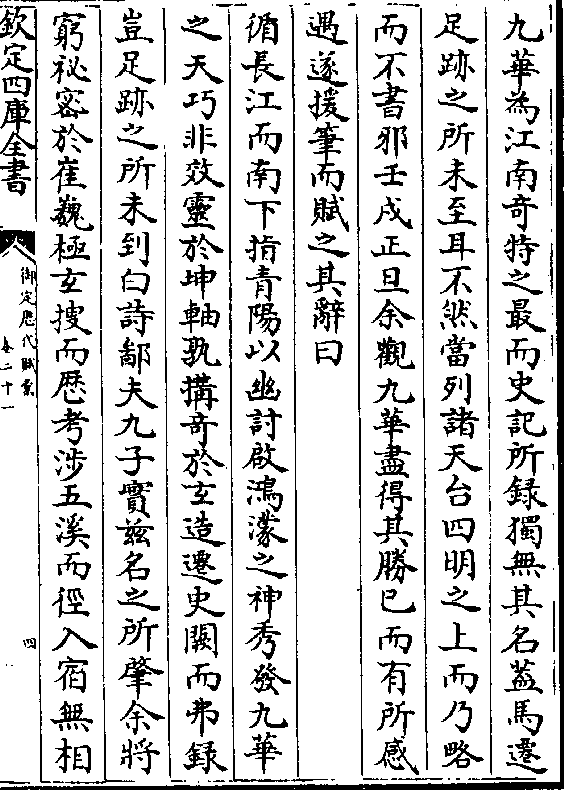 九華為江南奇特之最而史記所録獨無其名葢馬遷
足跡之所未至耳不然當列諸天台四明之上而乃略
而不書邪壬戌正旦余觀九華盡得其勝已而有所感
遇遂援筆而賦之其辭曰
循長江而南下指青陽以幽討啟鴻濛之神秀發九華
之天巧非效靈於坤軸孰搆奇於玄造遷史闕而弗録
豈足跡之所未到白詩鄙夫九子實兹名之所肇余將
窮祕宻於崔巍極玄搜而歴考渉五溪而徑入宿無相
欽定四庫全書
御定歴代賦彚
卷二十一
四